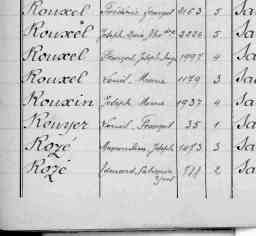 Rouxel Frédéric François 2163 5 Sa
Rouxel Joseph Marie 2026 5 Sa
Rouxel François Joseph 1997 4 Sa
Rouxel Louis Marie 1179 3 Sa
Rouxin Joseph Marie 1937 4 Sa
Rouyer Louis François 35 1 Sa
Rozé Maximilien Joseph 1073 3 Sa
Rozé Edouard 2 Sa